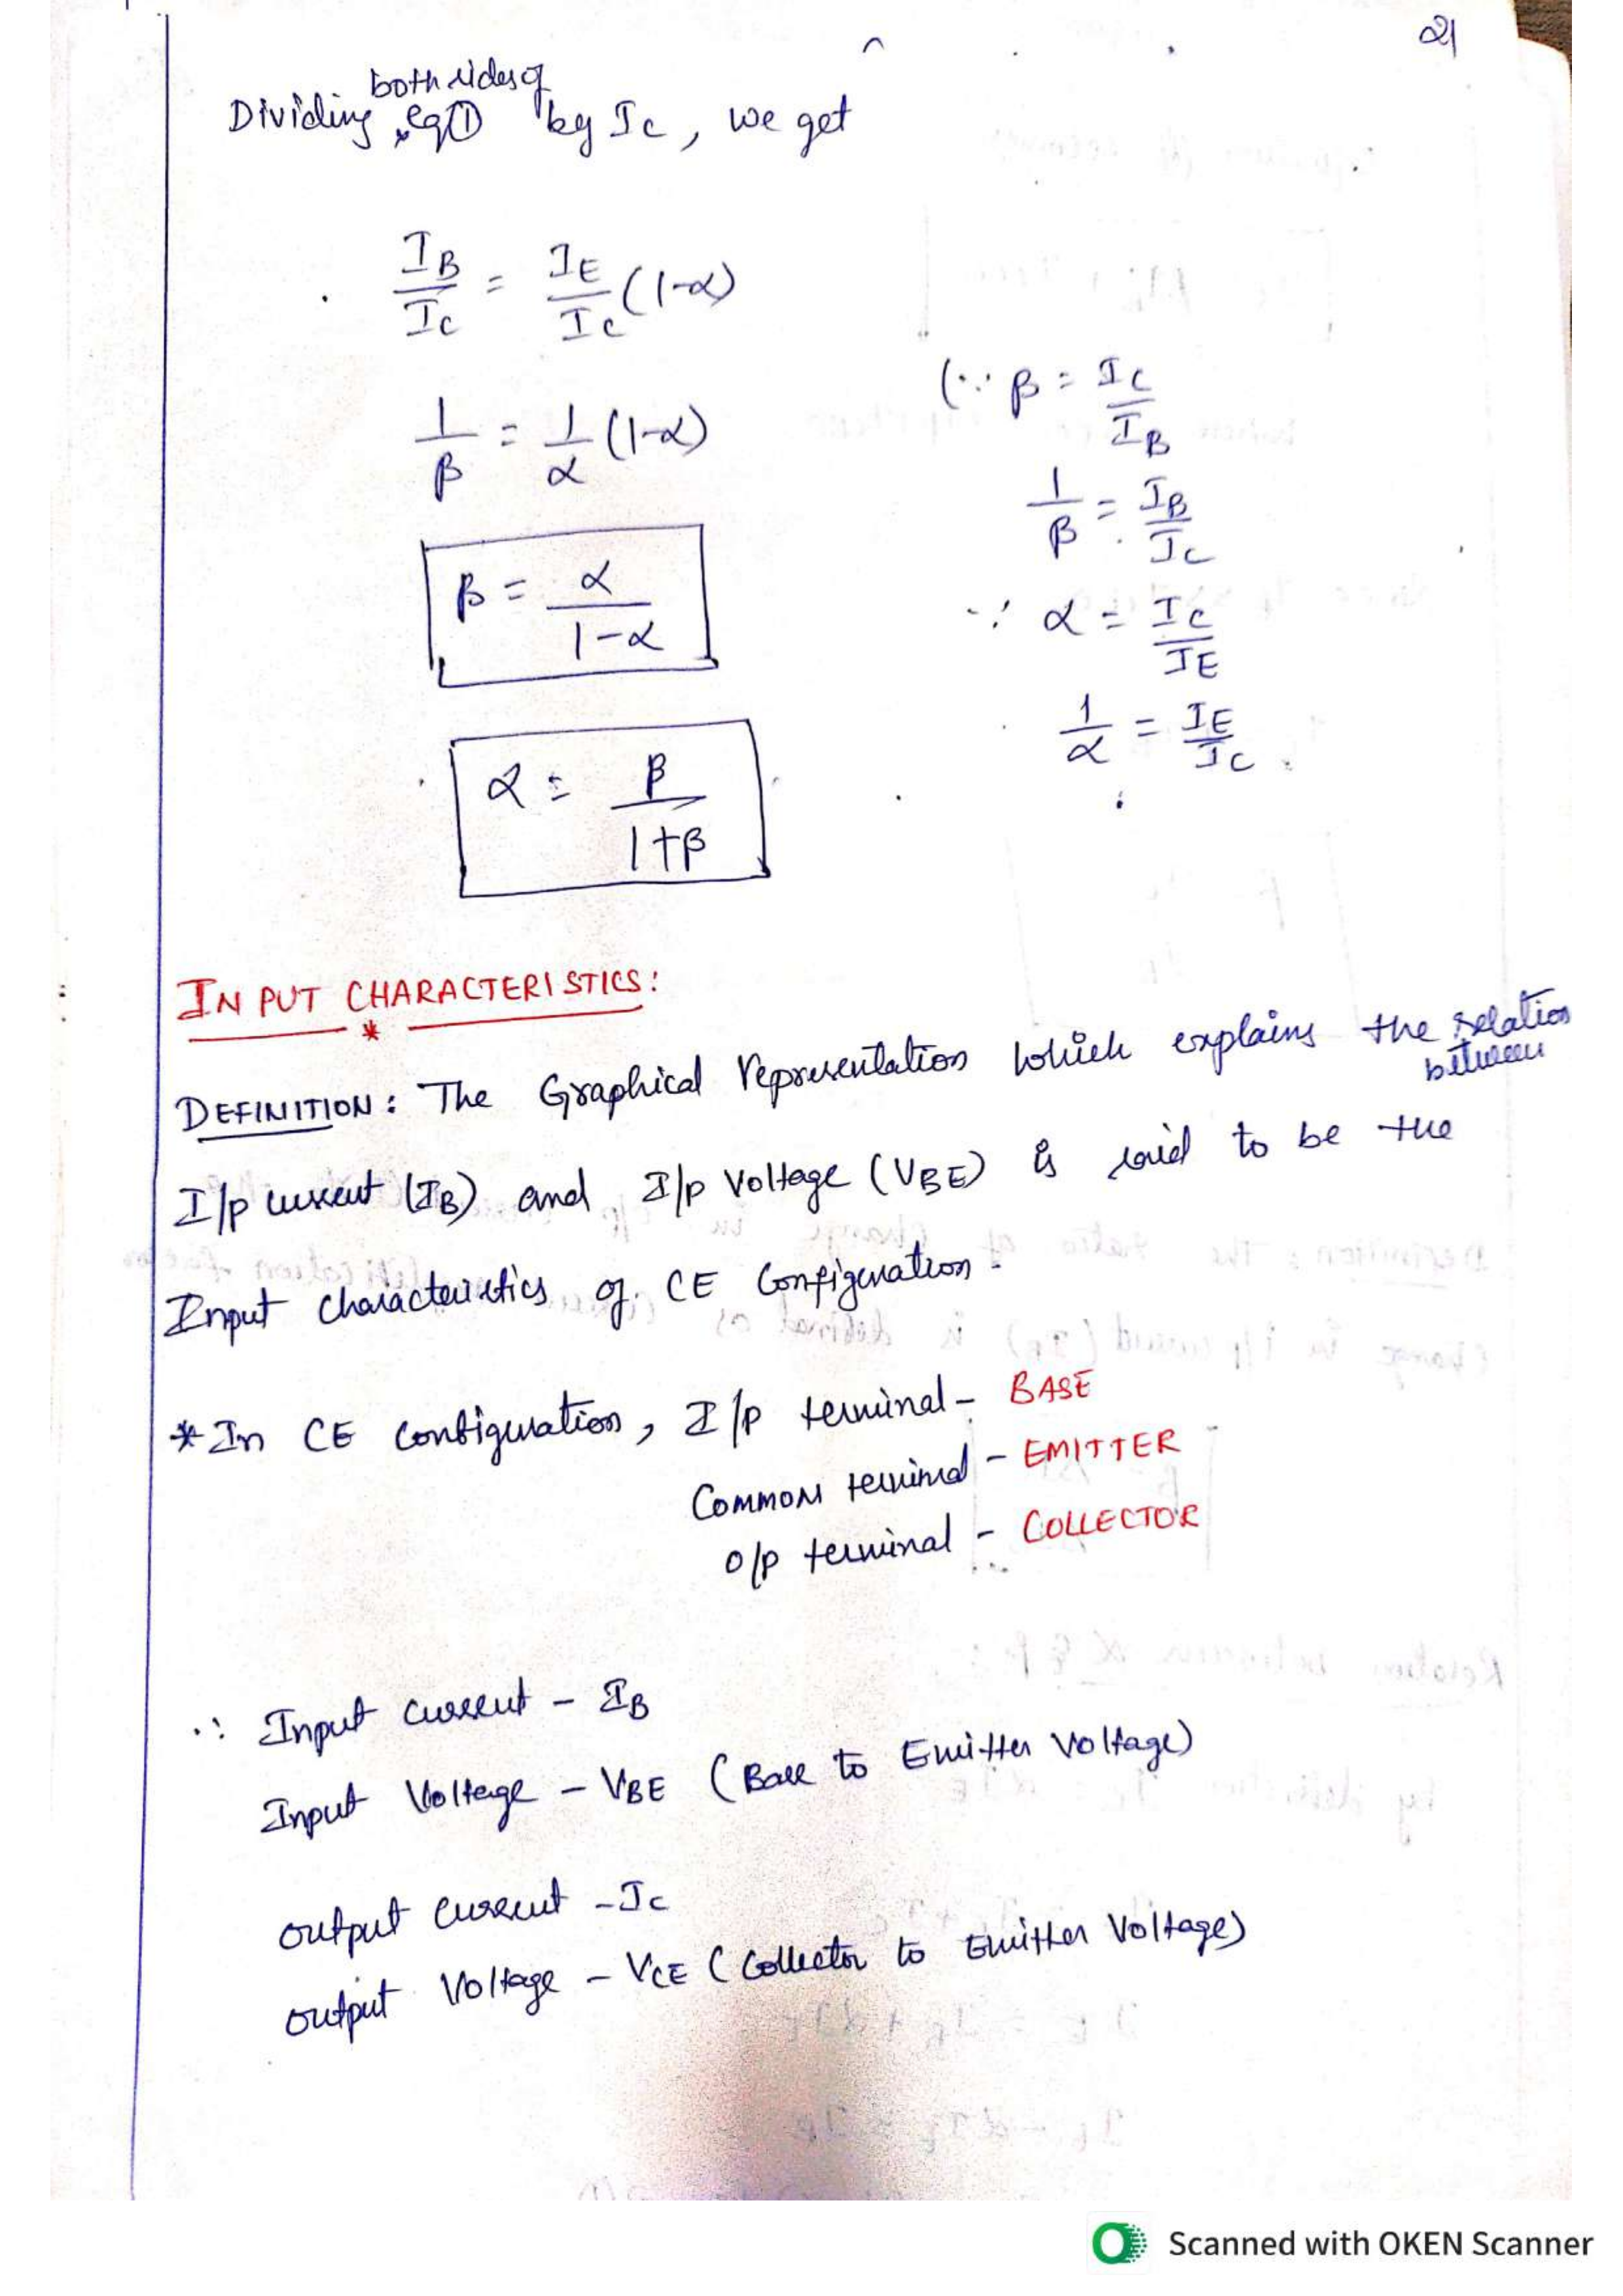 21
both sides of
Dividing eq① by Ic, we get
I_B/I_C = I_E/I_C (1-α)
(∵ β = I_C/I_B
1/β = 1/α (1-α)
1/β = I_B/I_C
β = α/(1-α)
∵ α = I_C/I_E
1/α = I_E/I_C
α = β/(1+β)
INPUT CHARACTERISTICS:
*
DEFINITION: The Graphical representation which explains the relation
between
I/p current (I_B) and I/p Voltage (V_BE) is said to be the
Input characteristics of CE Configuration.
*In CE configuration, I/p terminal - BASE
Common terminal - EMITTER
O/p terminal - COLLECTOR
∴ Input current - I_B
Input Voltage - V_BE (Base to Emitter Voltage)
output current - I_C
output Voltage - V_CE (Collector to Emitter Voltage)
Scanned with OKEN Scanner